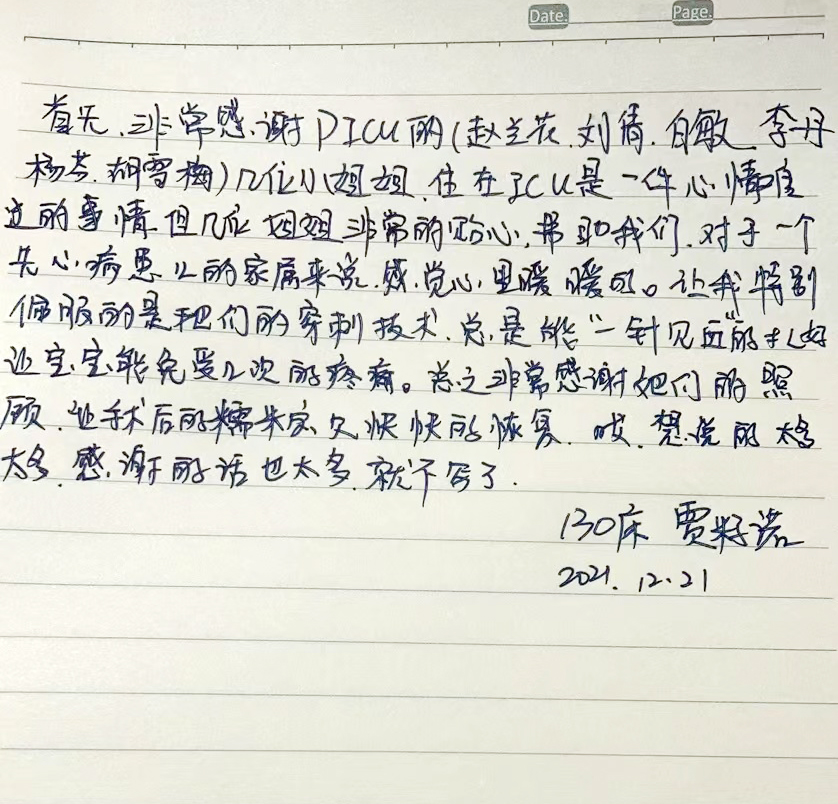 Date. Page.
首先,非常感谢PICU的(赵兰花.刘倩.白敏.李丹
杨芩.胡雪梅)几位小姐姐.住在ICU是一件心情
的事情但几位姐姐非常的贴心,帮助我们.对于一个
先心病患儿的家属来说.感觉心里暖暖的。让我特别
佩服的是她们的穿刺技术.总是能"一针见血"的扎好
让宝宝能免受2次的疼痛。总之非常感谢她们的照
顾.让手术后的糯米宝宝快快的恢复.哎.想说的太多
太多.感谢的话也太多.就不写了.
130床 贾籽诺
2021.12.21